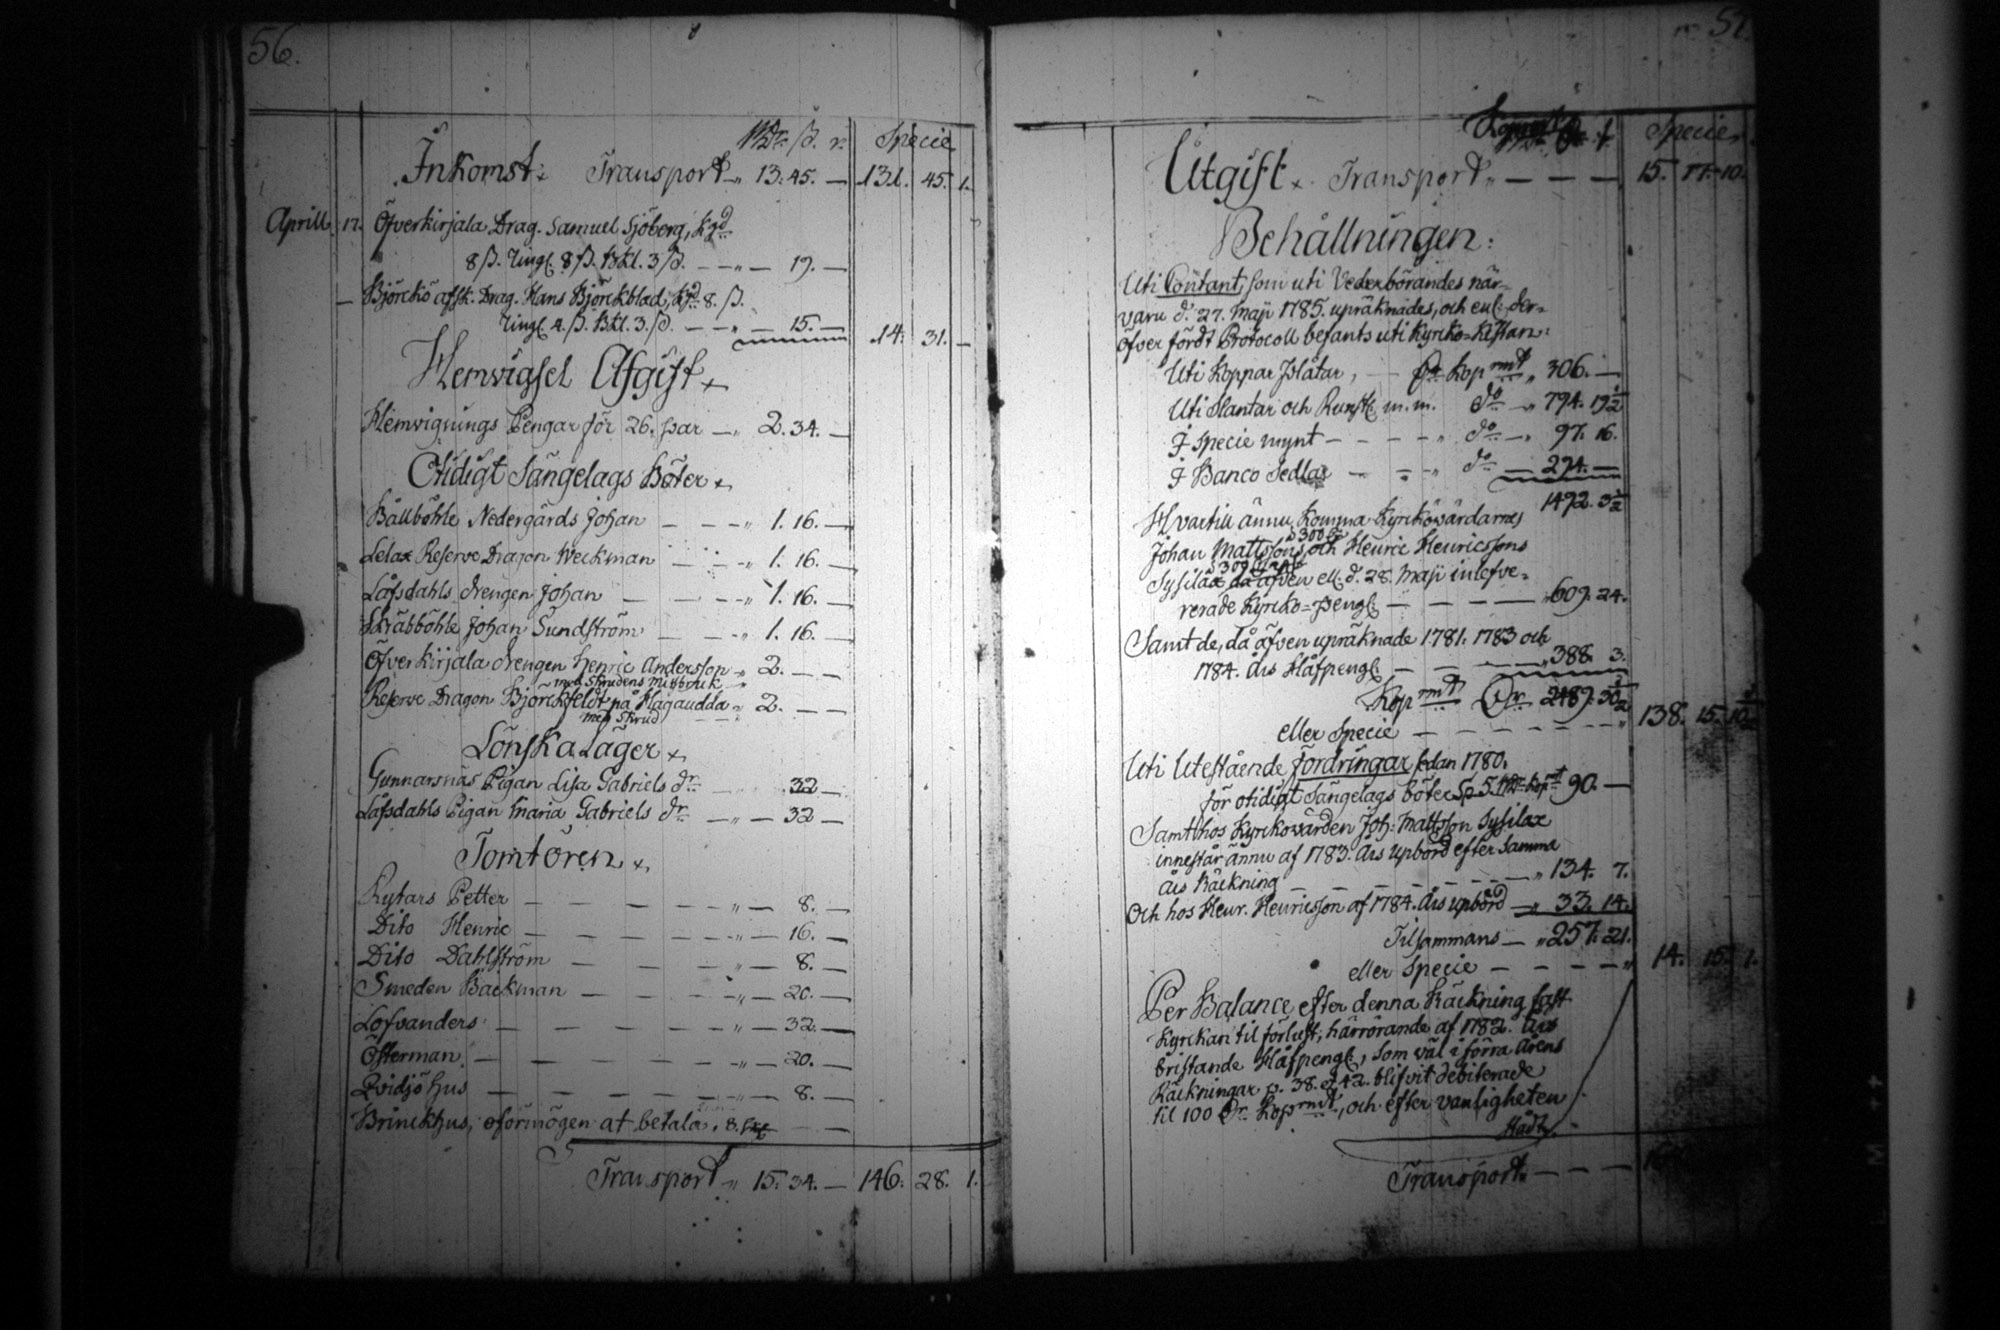 56.
Rd:r ß. r. Specie
Inkomst: Transport „ 13. 45. — 131. 45. 1.
Aprill. 17. Öfverkirjala Drag. Samuel Sjöberg, Kgd
8 ß. Ringl. 8 ß. Bkl. 3 ß. — „ — 19. —
— Björckö afsk. Drag. Hans Björckblad, Kgd 8. ß.
Ringl. 4. ß. Bkl. 3. ß. — — „ — 15. — 14. 31. —
Hemvigsel Afgift
Hemvignings Pengar för 26. par — „ 2. 34. —
Otidigt Sängelags Böter
Bällböhle Nedergårds Johan — — „ 1. 16. —
Lelax Reserve Dragon Weckman — — „ 1. 16. —
Låfsdahls drengen Johan — — — „ 1. 16. —
Skräbböhle Johan Sundström — — „ 1. 16. —
Öfverkirjala drengen Henric Andersson „ 2. — —
med Skrudens missbruk
Reserve Dragon Björckfeldt på Hagaudda „ 2. — —
med Skrud
Lönska Läger
Gunnarsnäs Pigan Lisa Gabriels dr. — 32 —
Låfsdahls Pigan Maria Gabriels dr. — „ — 32 —
Tomtören
Rytars Petter — — — — „ — 8. —
Dito Henric — — — — „ — 16. —
Dito Dahlström — — — — „ — 8. —
Smeden Bäckman — — — — „ — 20. —
Löfvanders — — — — — „ — 32. —
Österman — — — — — „ — 20. —
Qvidjö hus — — — — — „ — 8. —
Brinckhus, oförmögen at betala. 8. — —
Transport „ 15. 34. — 146. 28. 1.
57.
Specie
Utgift. Transport „ — — — 15. 17. 10.
Behållningen:
Uti Contant, som uti Vederbörandes när-
varu d. 27. Maji 1785. upräknades, och enl. der-
öfver fördt Protocoll befants uti Kyrko-Kistan:
Uti Koppar Plåtar, — Dr Kop rmt „ 306. —
Uti Slantar och Runst. m. m. do — „ 794. 19½
I Specie mynt — — — — „ do — „ 97. 16.
I Banco Sedlar — — „ do — 274. —
1472. 3½
Hvartill ännu komma Kyrkovärdarnes
Johan Mattssons och Henric Henricssons
Sysilax då äfven ell. d. 28. Maji inlefve-
rerade Kyrko-Peng. — — — — „ 609. 24.
Samt de, då äfven upräknade 1781. 1783 och
1784. års Håfpeng. — — — — „ 388. 3.
Kop rmt Dr. 2489. 30½
eller Specie — — — — — — „ 138. 15. 10
Uti Utestående fordringar sedan 1780.
för otidigt Sängelags böter Sp. 5. Rdr Kopmt 90. —
Samt hos Kyrkovärden Joh: Mattsson Sysilax
innestår ännu af 1783. års upbörd efter samma
års Räckning — — — — — — „ 134. 7.
Och hos Henr. Henricsson af 1784. års upbörd — „ 33. 14.
Tilsammans — „ 257. 21.
eller Specie — — — — „ 14. 15. 1.
Per Balance, efter denna Räckning, satt
Kyrkan til förlust, härrörande af 1782. års
bristande Håfpeng., som väl i förra årens
Räckningar p. 38. & 42. blifvit debiterade
til 100 Dr. Kop rmt, och efter vanligheten
Transport — — —